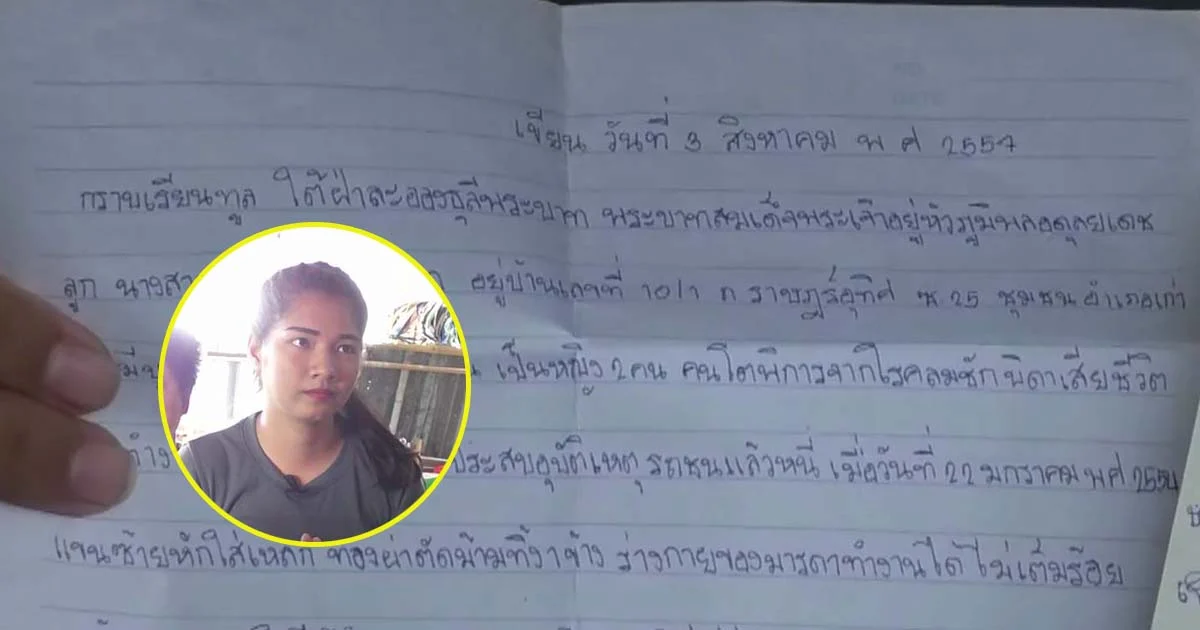 เขียน วันที่ 3 สิงหาคม พ ศ 2557
กราบเรียนทูล ใต้ฝ่าละอองธุลีพระบาท พระบาทสมเด็จพระเจ้าอยู่หัวภูมิพลอดุลยเดช
ลูก นางสา อยู่บ้านเลขที่ 10/1 ถ ราษฎร์อุทิศ ซ 25 ชุมชนอำเภอเก่า
เป็นหญิง 2 คน คนโตพิการจากโรคลมชัก บิดาเสียชีวิต
ประสบอุบัติเหตุ รถชนแล้วหนี เมื่อวันที่ 22 มกราคม พศ
แขนซ้ายหักใส่เหล็ก ท้องผ่าตัดม้ามทิ้ง 1 ข้าง ร่างกายของมารดาทำงานได้ไม่เต็มร้อย